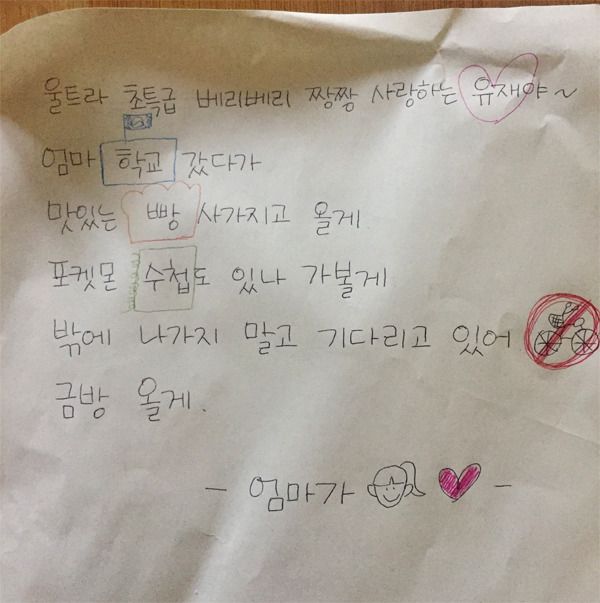 울트라 초특급 베리베리 짱짱 사랑하는 유재야~
엄마 학교 갔다가
맛있는 빵 사가지고 올게
포켓몬 수첩도 있나 가볼게
밖에 나가지 말고 기다리고 있어
금방 올게.
- 엄마가 -